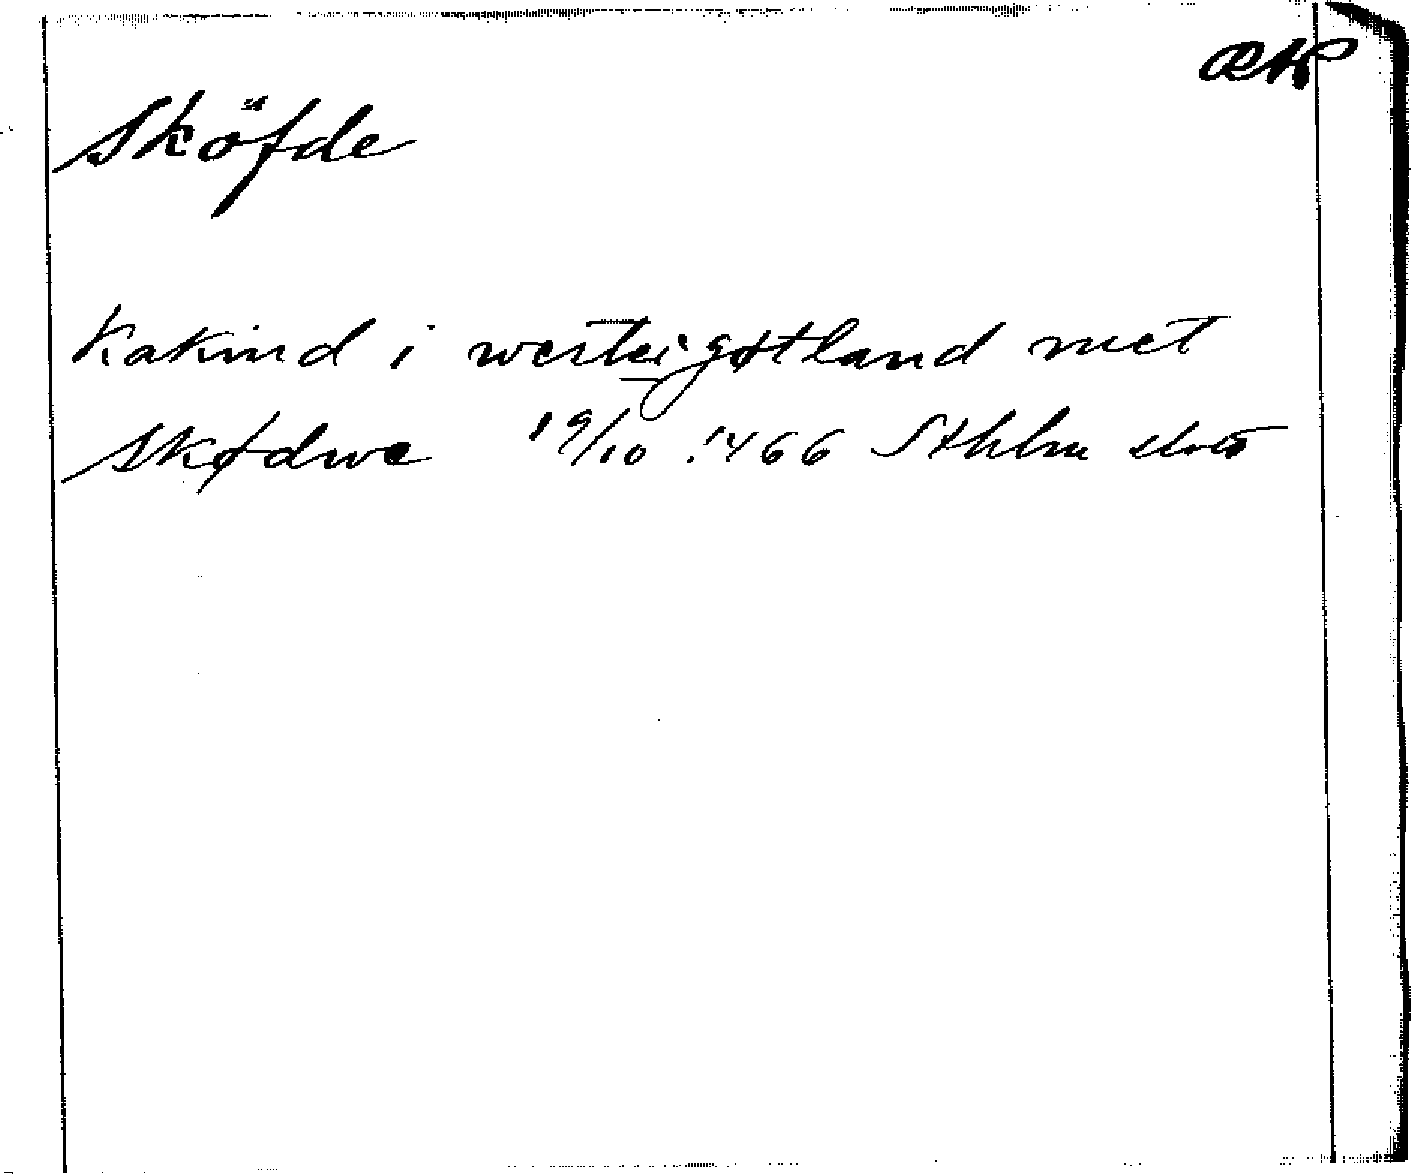 ÆK
Sköfde
Kakind i westergøtland met
Skødwe 19/10 1466 Sthlm slott